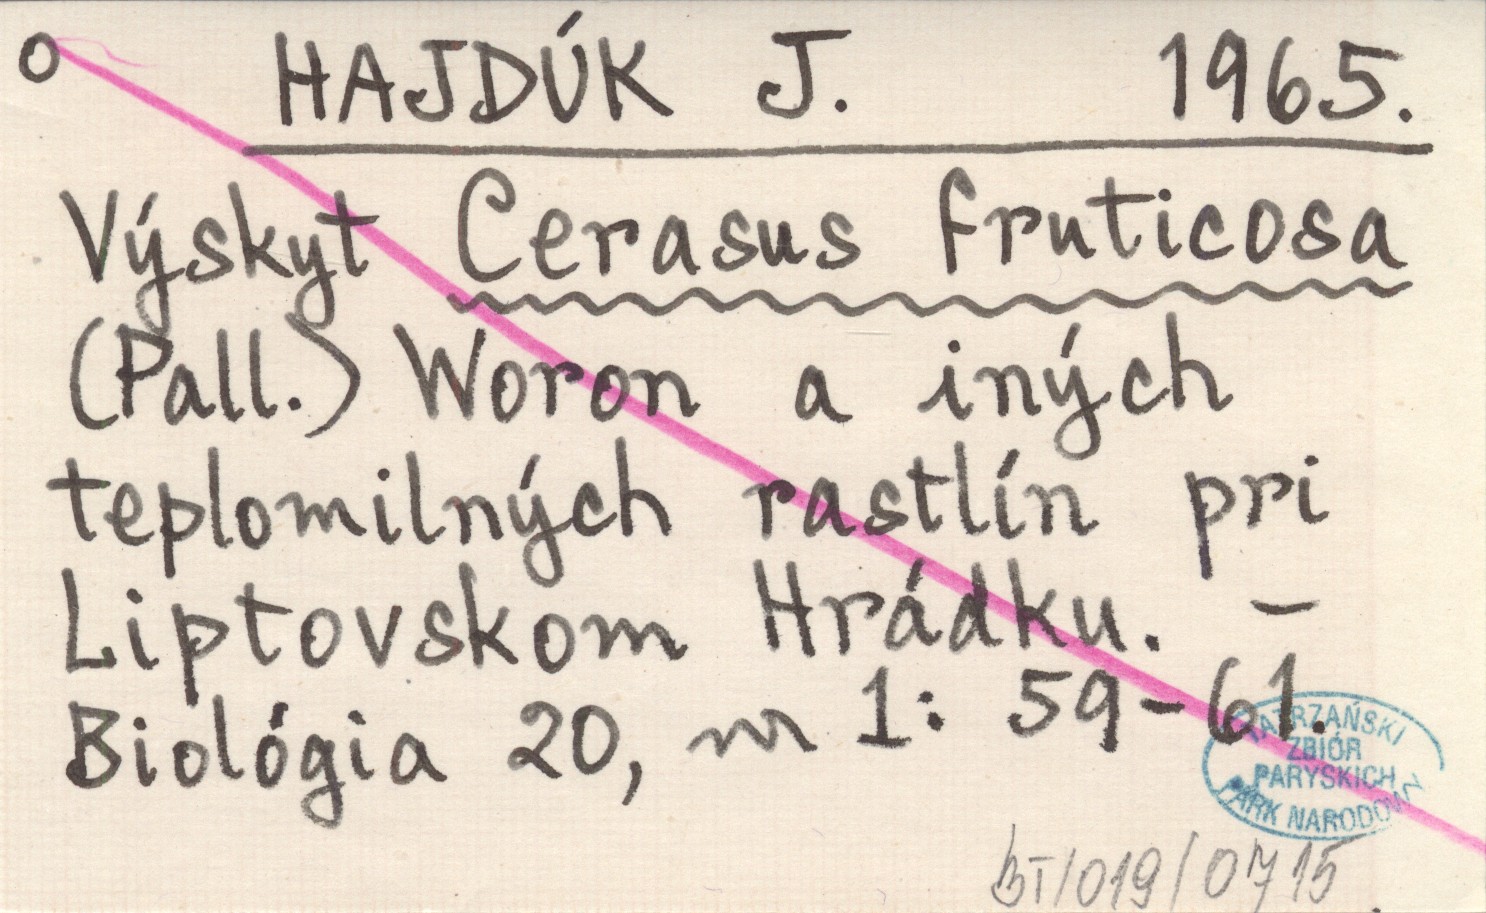 O HAJDÚK J. 1965.
Výskyt Cerasus fruticosa
(Pall.) Woron a iných
teplomilných rastlín pri
Liptovskom Hrádku. –
Biológia 20, nr 1: 59–61.
TATRZAŃSKI
ZBIÓR
PARYSKICH
PARK NARODOWY
BT/019/0715